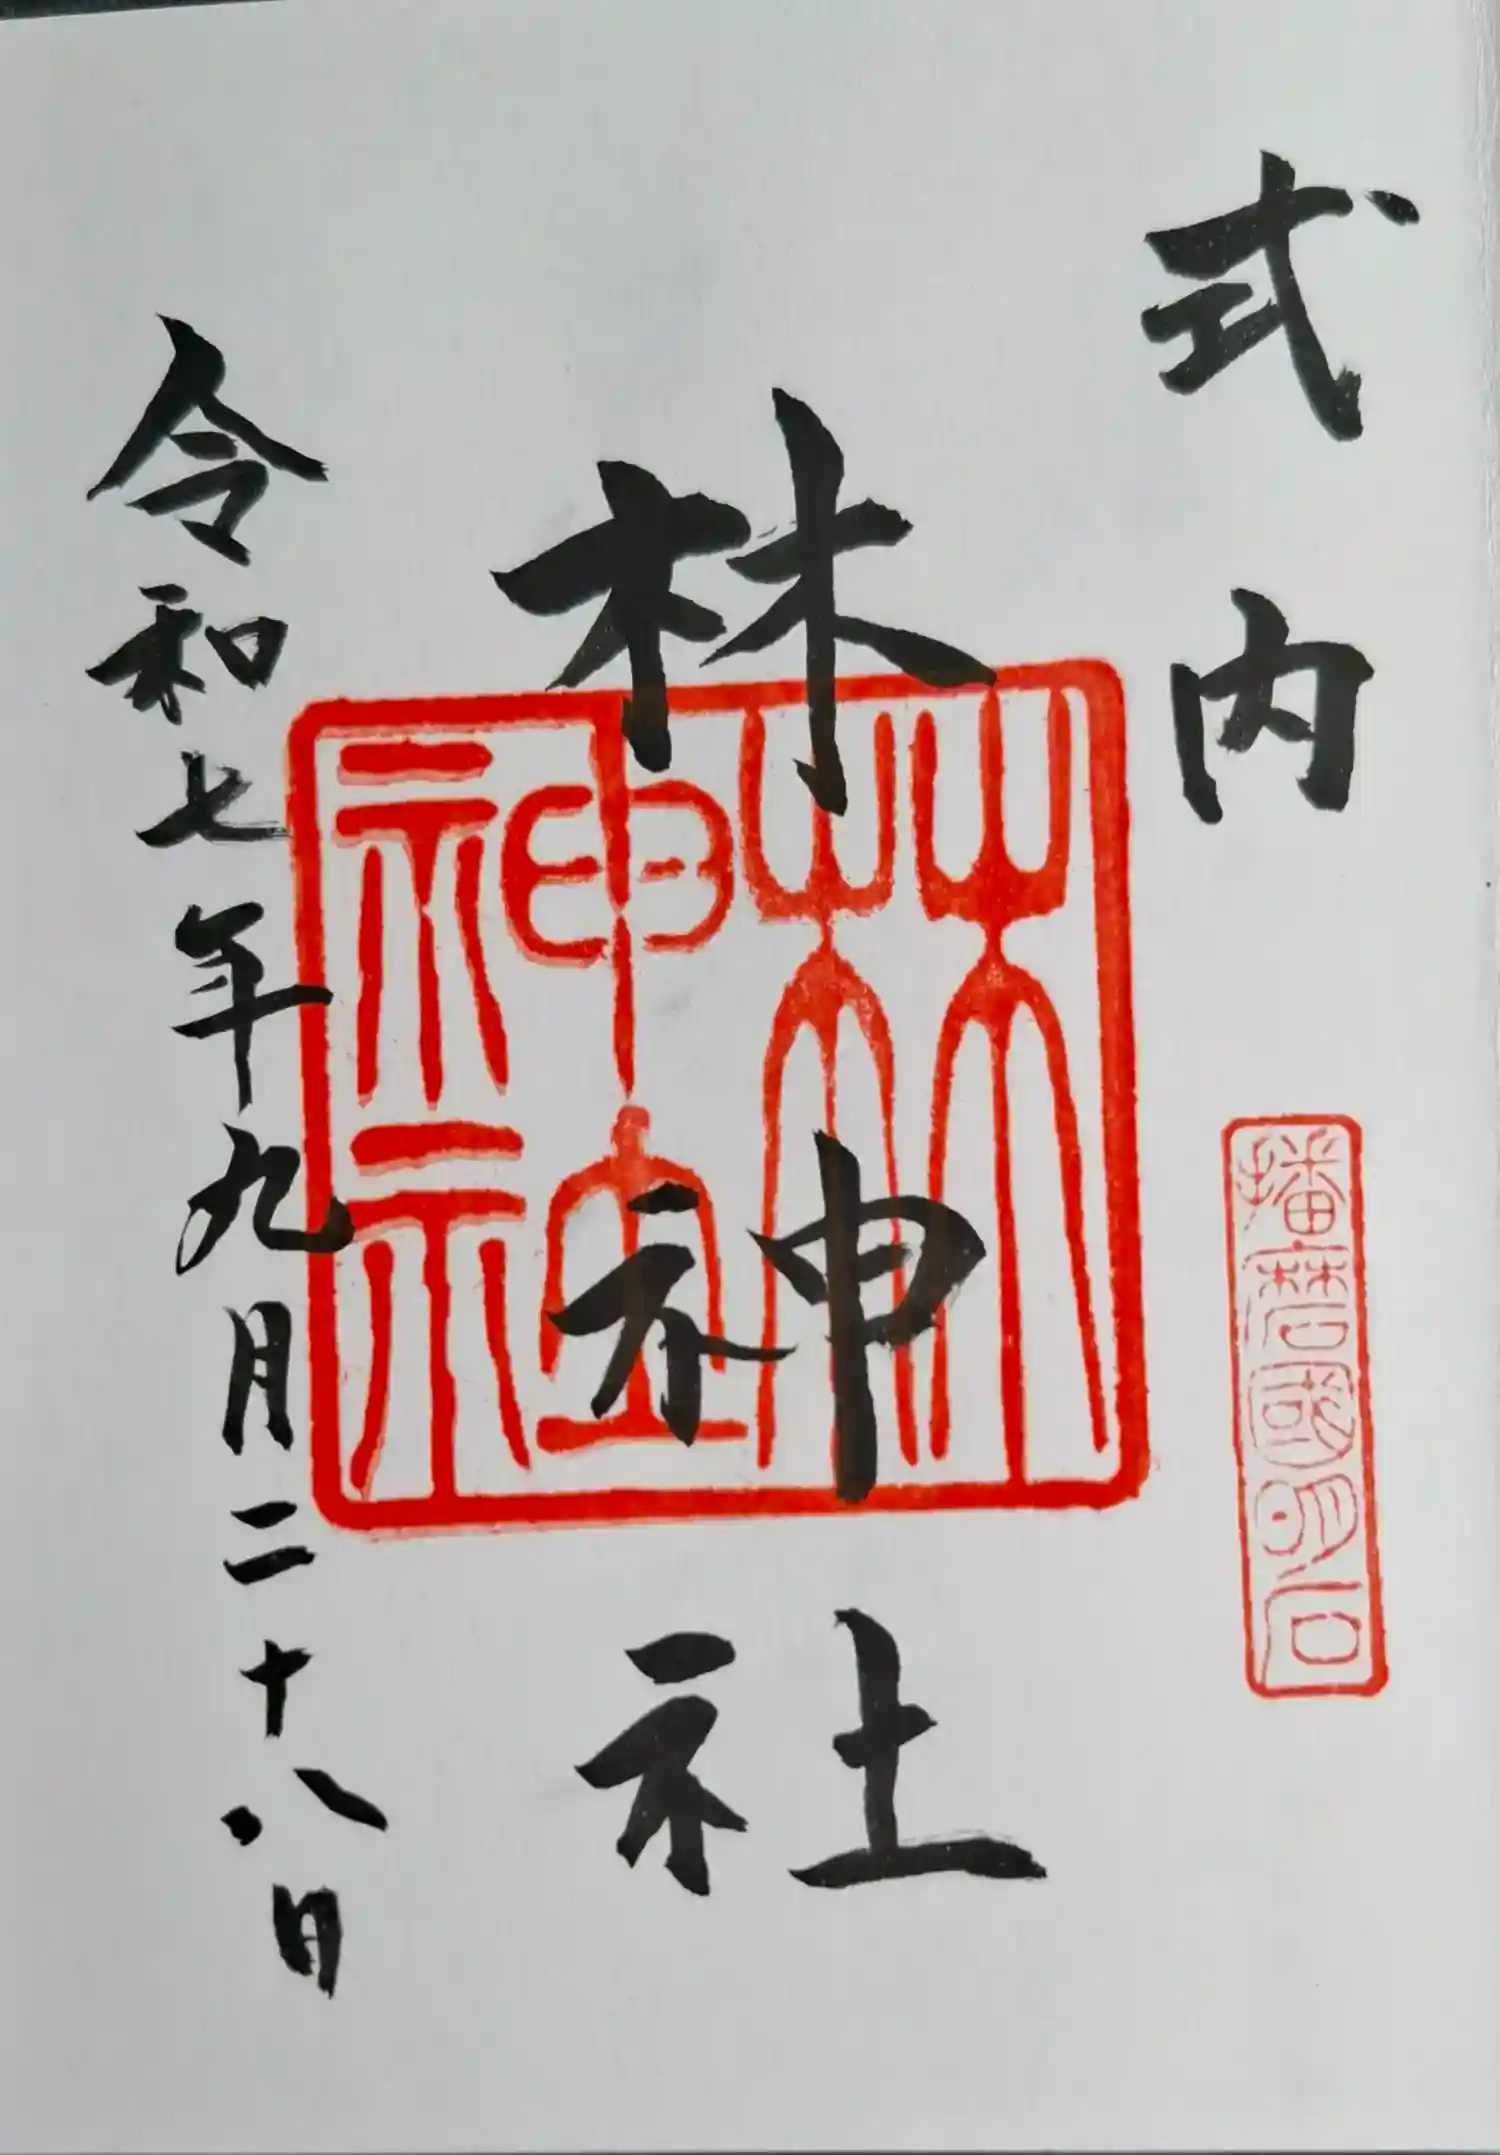 式内
播磨國明石
林神社
林神社
令和七年九月二十八日